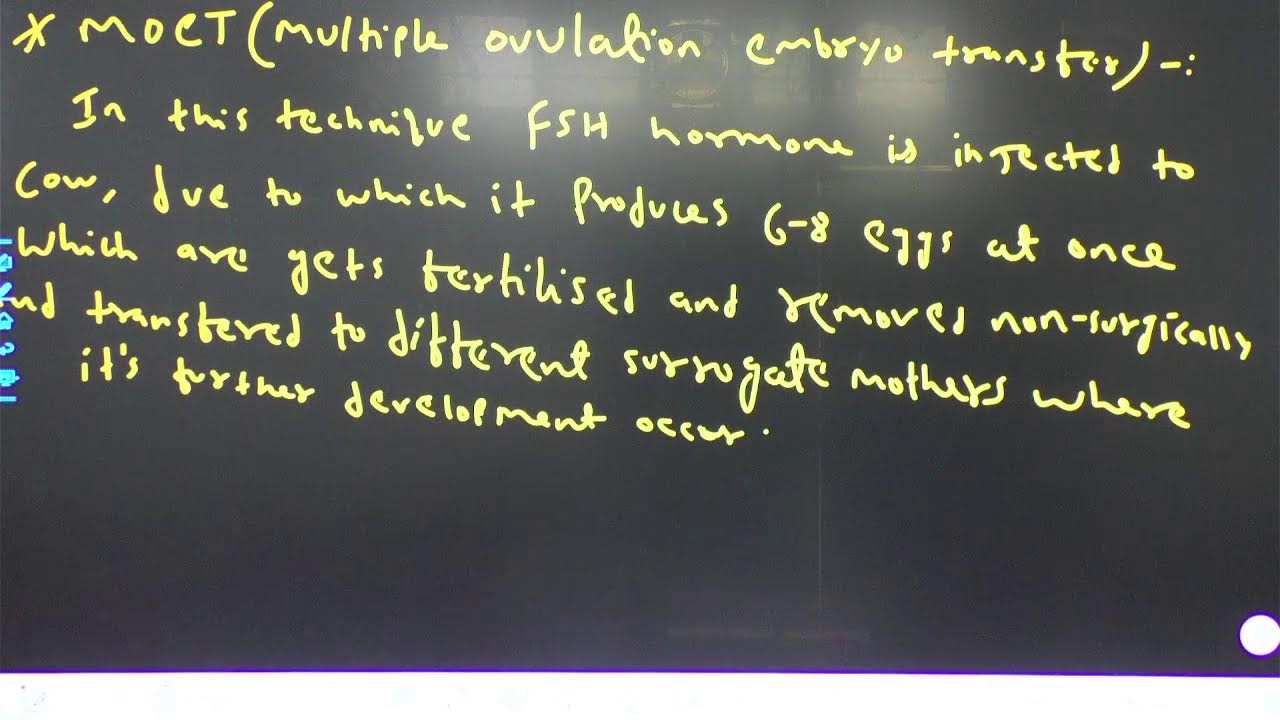 * MOET (multiple ovulation embryo transfer) -:
In this technique FSH hormone is injected to
Cow, due to which it produces 6-8 eggs at once
Which are gets fertilised and removed non-surgically
and transfered to different surrogate mothers where
it's further development occur.